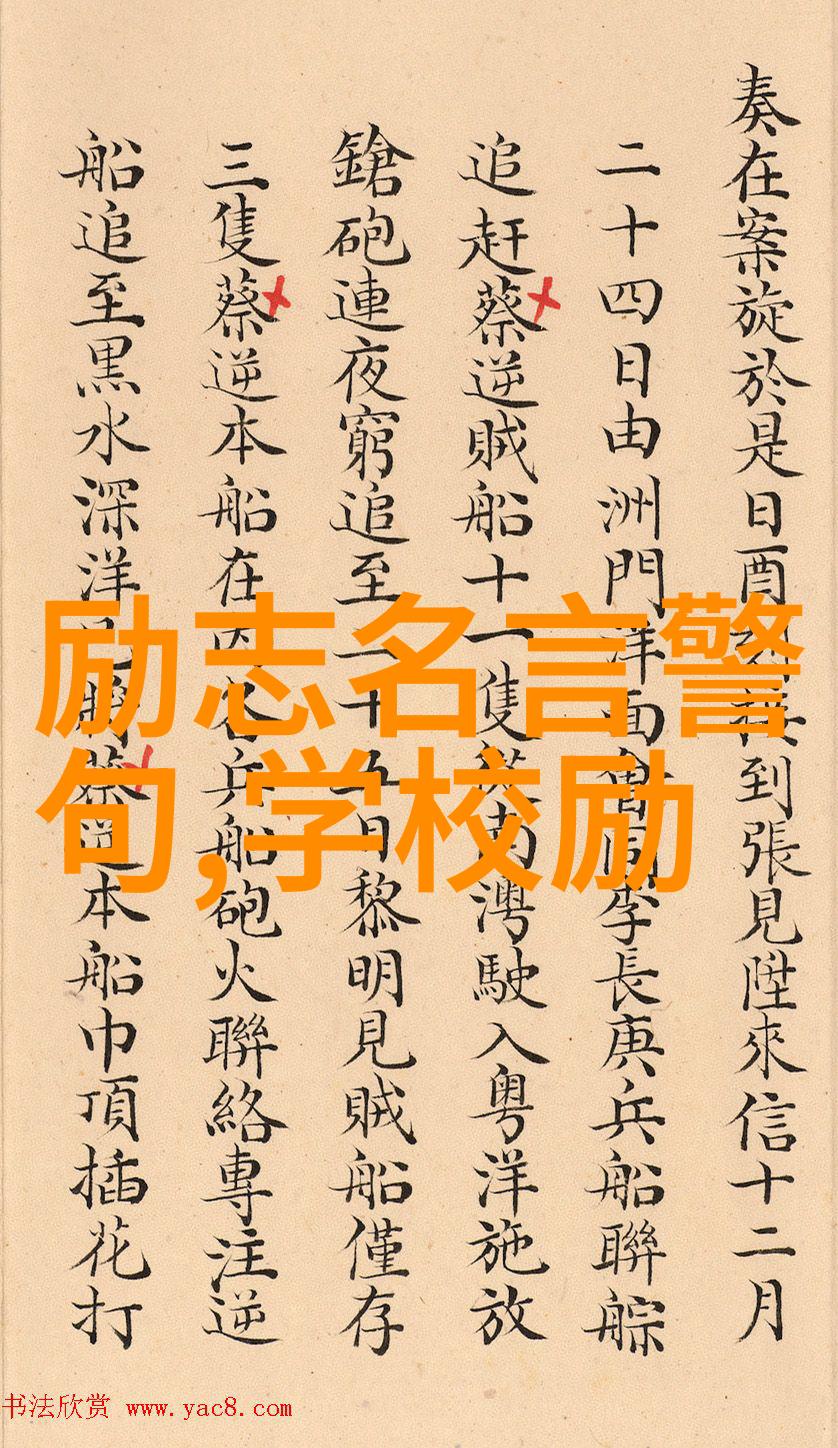 奏在案旋於是日酉刻接到張見陞來信十二月
二十四日由洲門洋面會同李長庚兵船聯䑸
追赶蔡逆賊船十一隻從南灣駛入粤洋施放
鎗砲連夜窮追至二十五日黎明見賊船僅存
三隻蔡逆本船在内各兵船砲火聯絡專注逆
船追至黒水深洋已將蔡逆本船巾頂插花打
励志名言警
句,学校励
书法欣赏 www.yac8.com